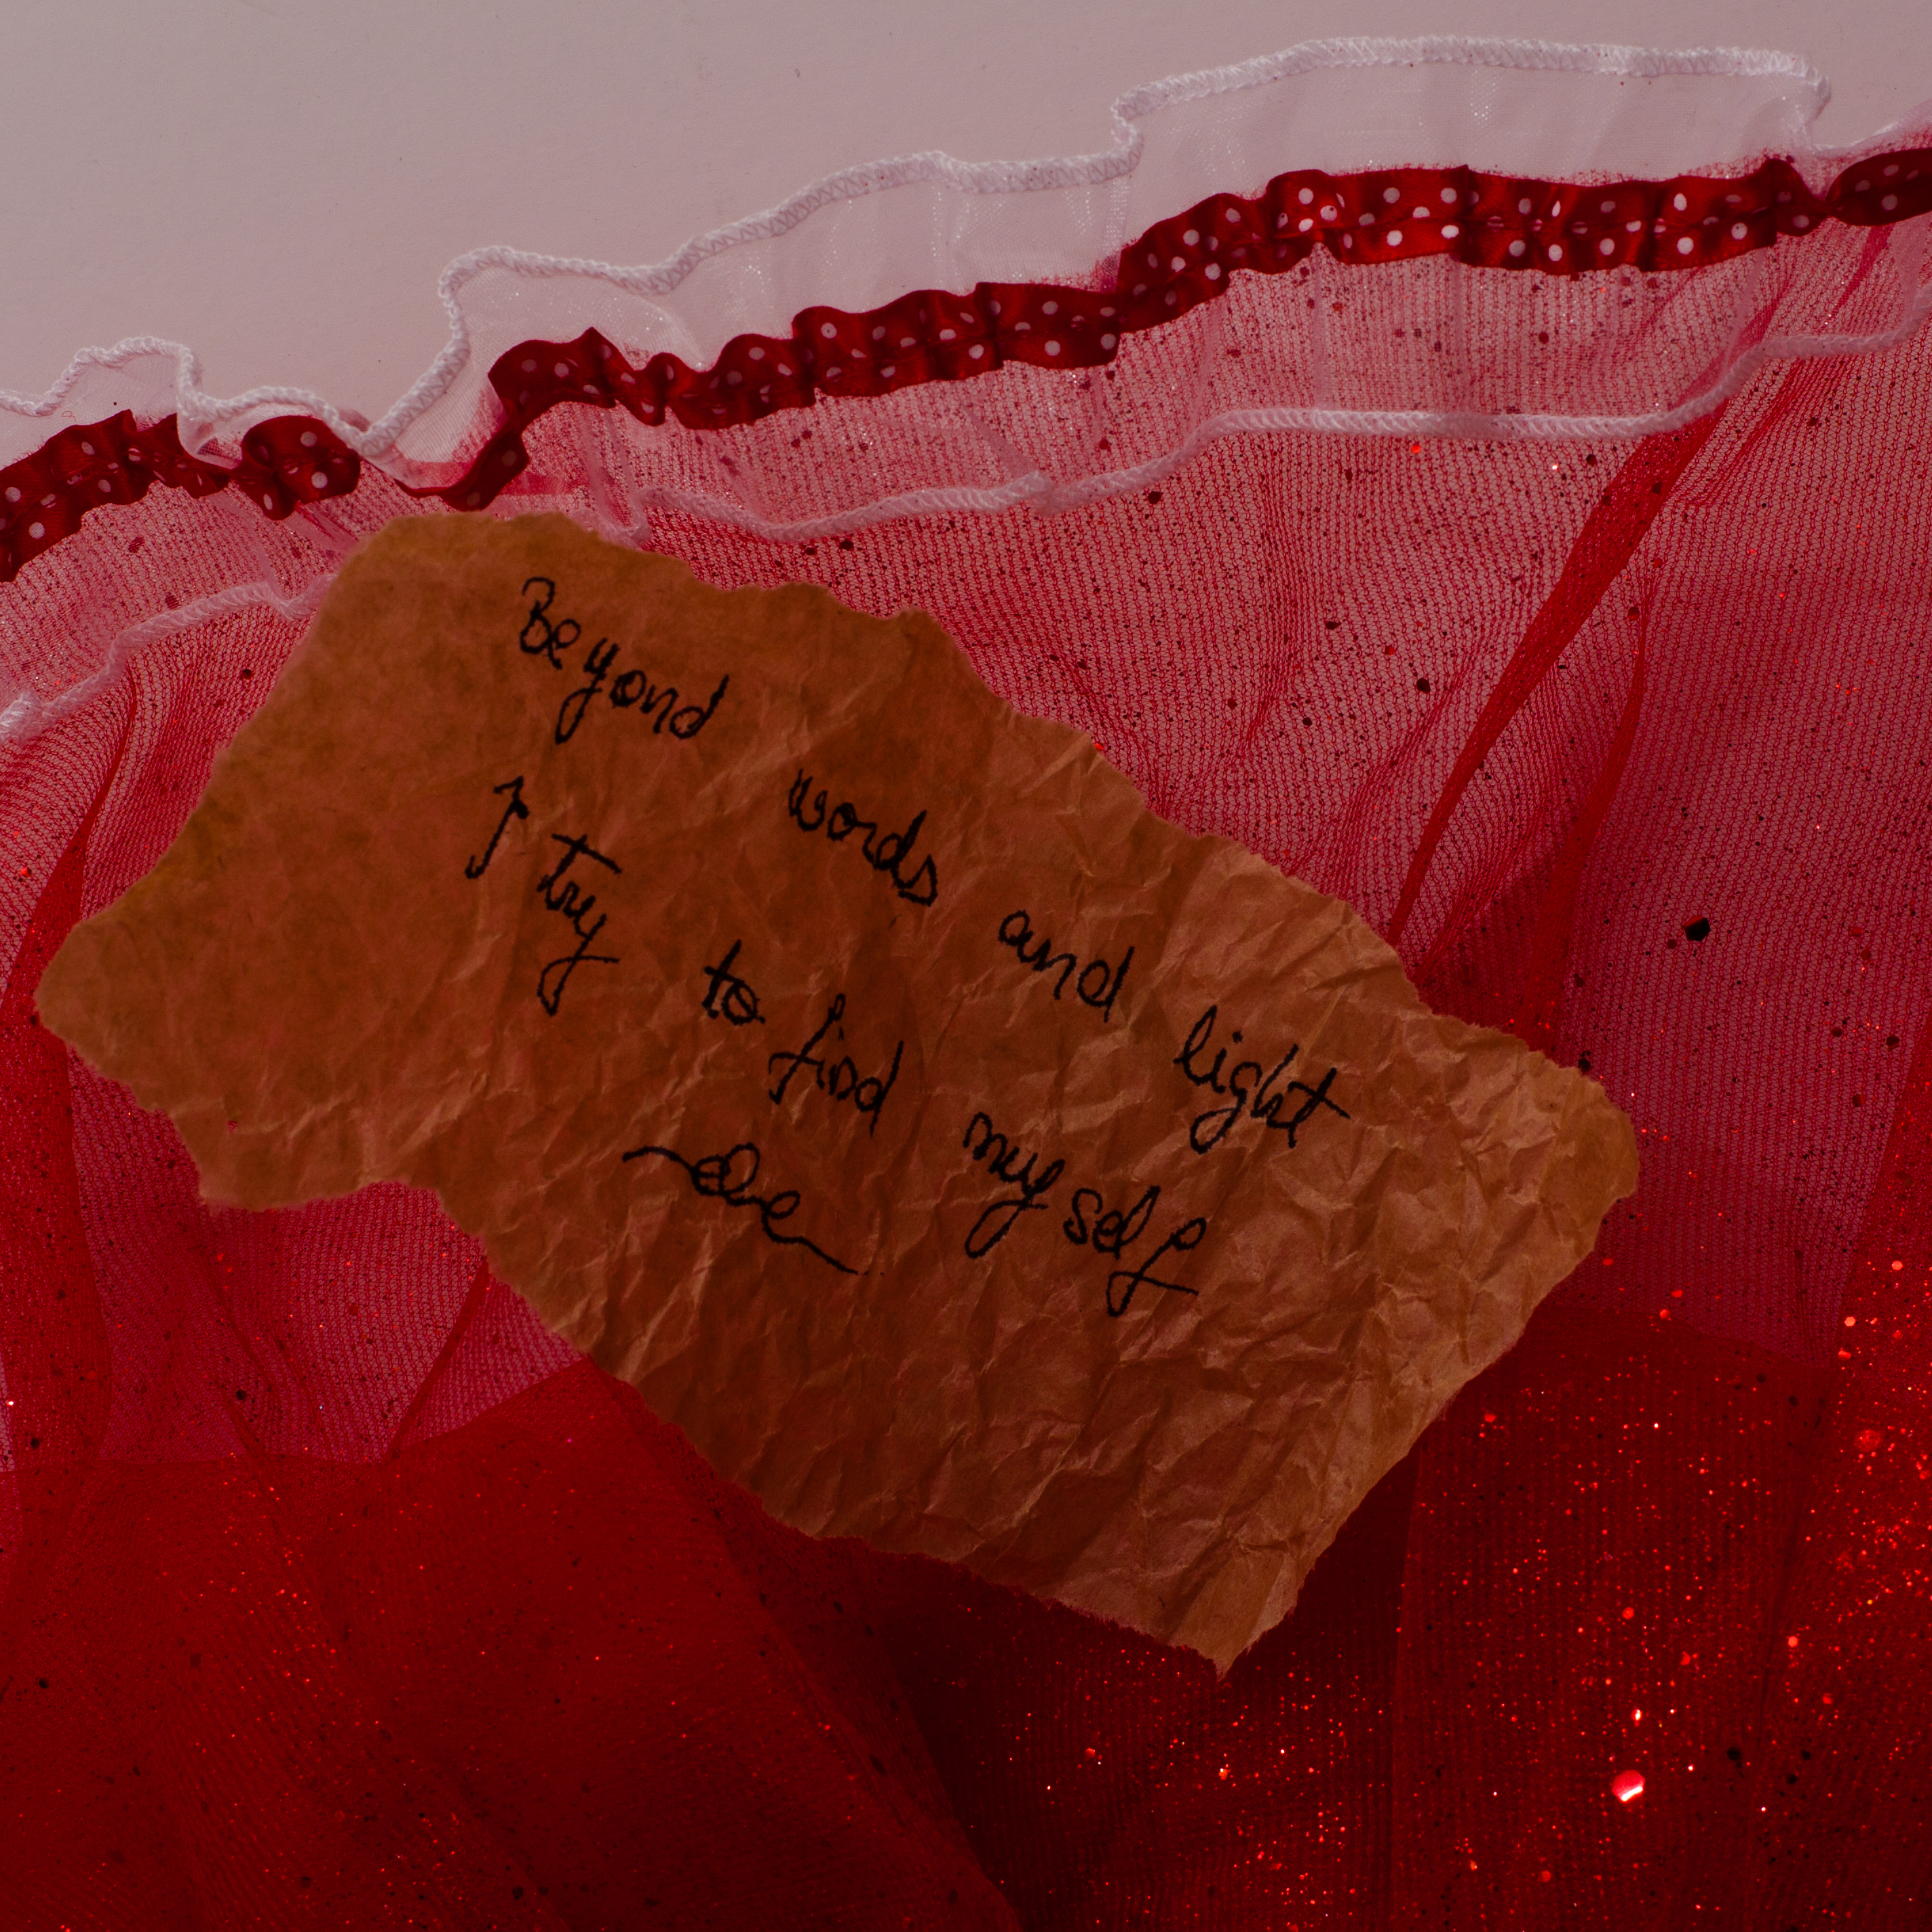 Beyond words and light
I try to find myself